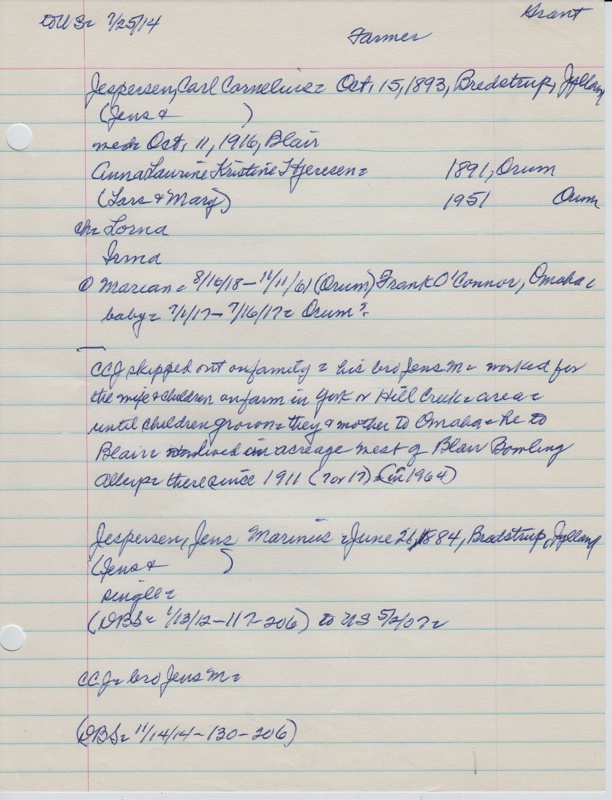 to US= 7/25/14
Grant
Farmer
Jespersen, Carl Cornelius= Oct. 15, 1893, Bredstrup, Jylland
(Jens & )
med= Oct. 11, 1916, Blair
Anna Laurine Kristine Hjeresen= 1891, Orum
(Lars & Mary) 1951 Orum
ch= Lorna
Irma
Marian= 8/16/18-11/11/61 (Orum) Frank O'Connor, Omaha=
baby= 7/1/17-7/16/17= Orum?
CCJ skipped out on family= his bro Jens M= worked for
the wife & children on farm in York or Hill Creek= area=
until children grown= they & mother to Omaha= he to
Blair= lived in acreage west of Blair Bowling
Alley= there since 1911 (7 or 17) (in 1964)
Jespersen, Jens Marinus= June 21, 1884, Bredstrup, Jylland
(Jens & )
single=
(DBS= 1/13/12-117-206) to US 5/2/07=
CCJ= bro Jens M=
(DBS= 11/14/14-130-206)